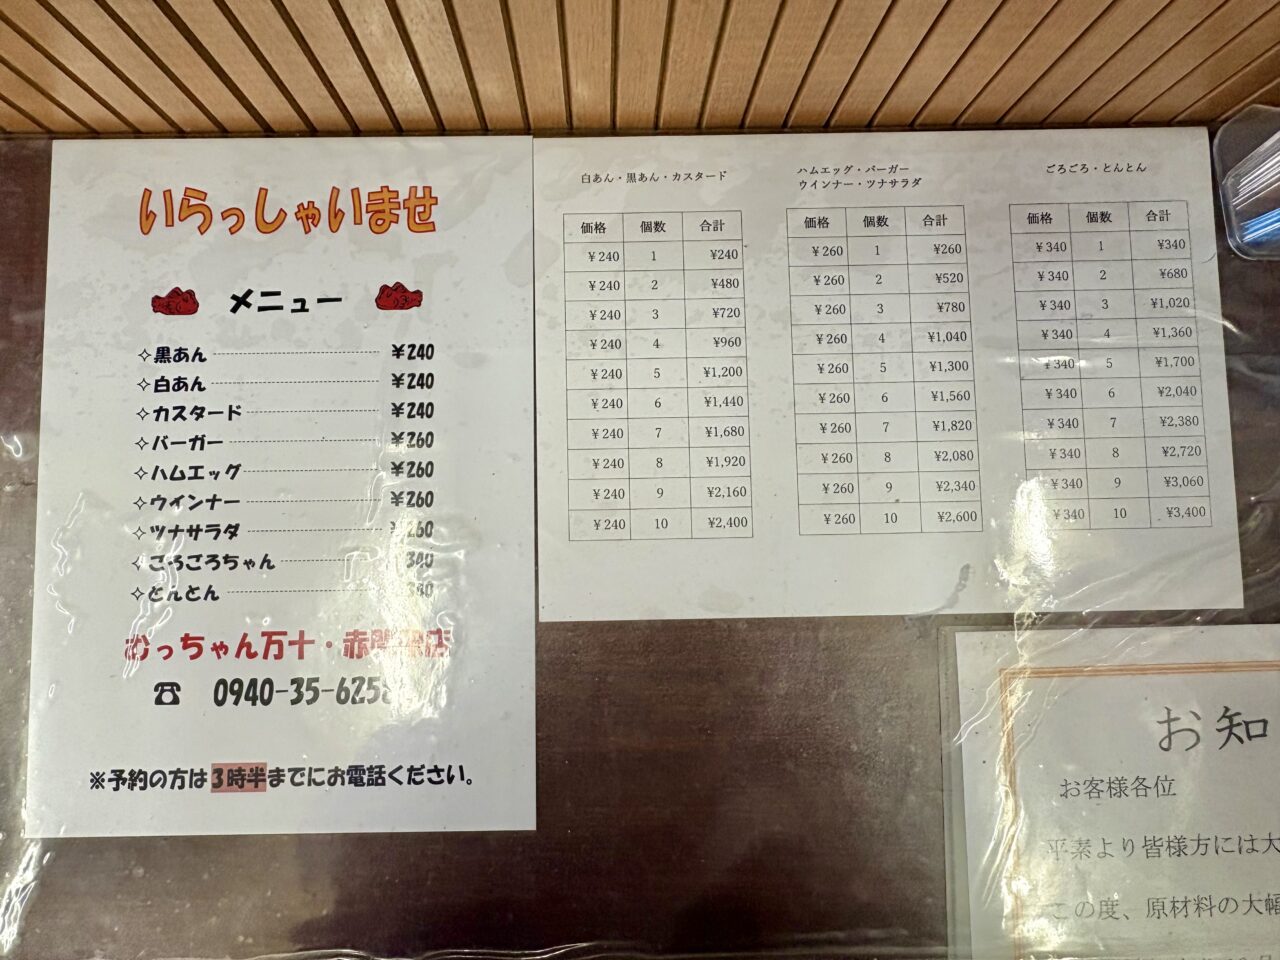 いらっしゃいませ
メニュー
✧黒あん ¥240
✧白あん ¥240
✧カスタード ¥240
✧バーガー ¥260
✧ハムエッグ ¥260
✧ウインナー ¥260
✧ツナサラダ ¥260
✧ごろごろちゃん 340
✧とんとん
むっちゃん万十・赤間
☎ 0940-35-6258
※予約の方は3時半までにお電話ください。
白あん・黒あん・カスタード
価格 個数 合計
¥240 1 ¥240
¥240 2 ¥480
¥240 3 ¥720
¥240 4 ¥960
¥240 5 ¥1,200
¥240 6 ¥1,440
¥240 7 ¥1,680
¥240 8 ¥1,920
¥240 9 ¥2,160
¥240 10 ¥2,400
ハムエッグ・バーガー
ウインナー・ツナサラダ
価格 個数 合計
¥260 1 ¥260
¥260 2 ¥520
¥260 3 ¥780
¥260 4 ¥1,040
¥260 5 ¥1,300
¥260 6 ¥1,560
¥260 7 ¥1,820
¥260 8 ¥2,080
¥260 9 ¥2,340
¥260 10 ¥2,600
ごろごろ・とんとん
価格 個数 合計
¥340 1 ¥340
¥340 2 ¥680
¥340 3 ¥1,020
¥340 4 ¥1,360
¥340 5 ¥1,700
¥340 6 ¥2,040
¥340 7 ¥2,380
¥340 8 ¥2,720
¥340 9 ¥3,060
¥340 10 ¥3,400
お知
お客様各位
平素より皆様方には大
この度、原材料の大幅